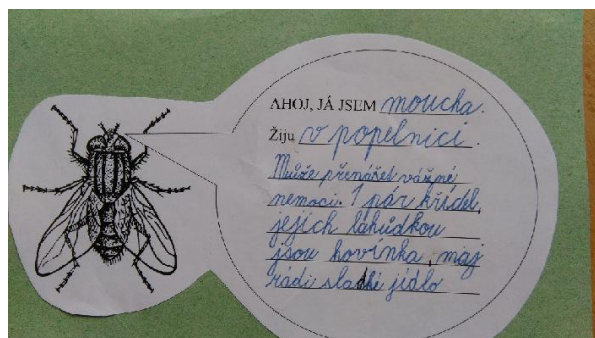 AHOJ, JÁ JSEM moucha.
Žiju v popelnici.
Může přenášet vážné
nemoci. 1 pár křídel,
jejich lahůdkou
jsou hovínka, maj
rádi sladké jídlo